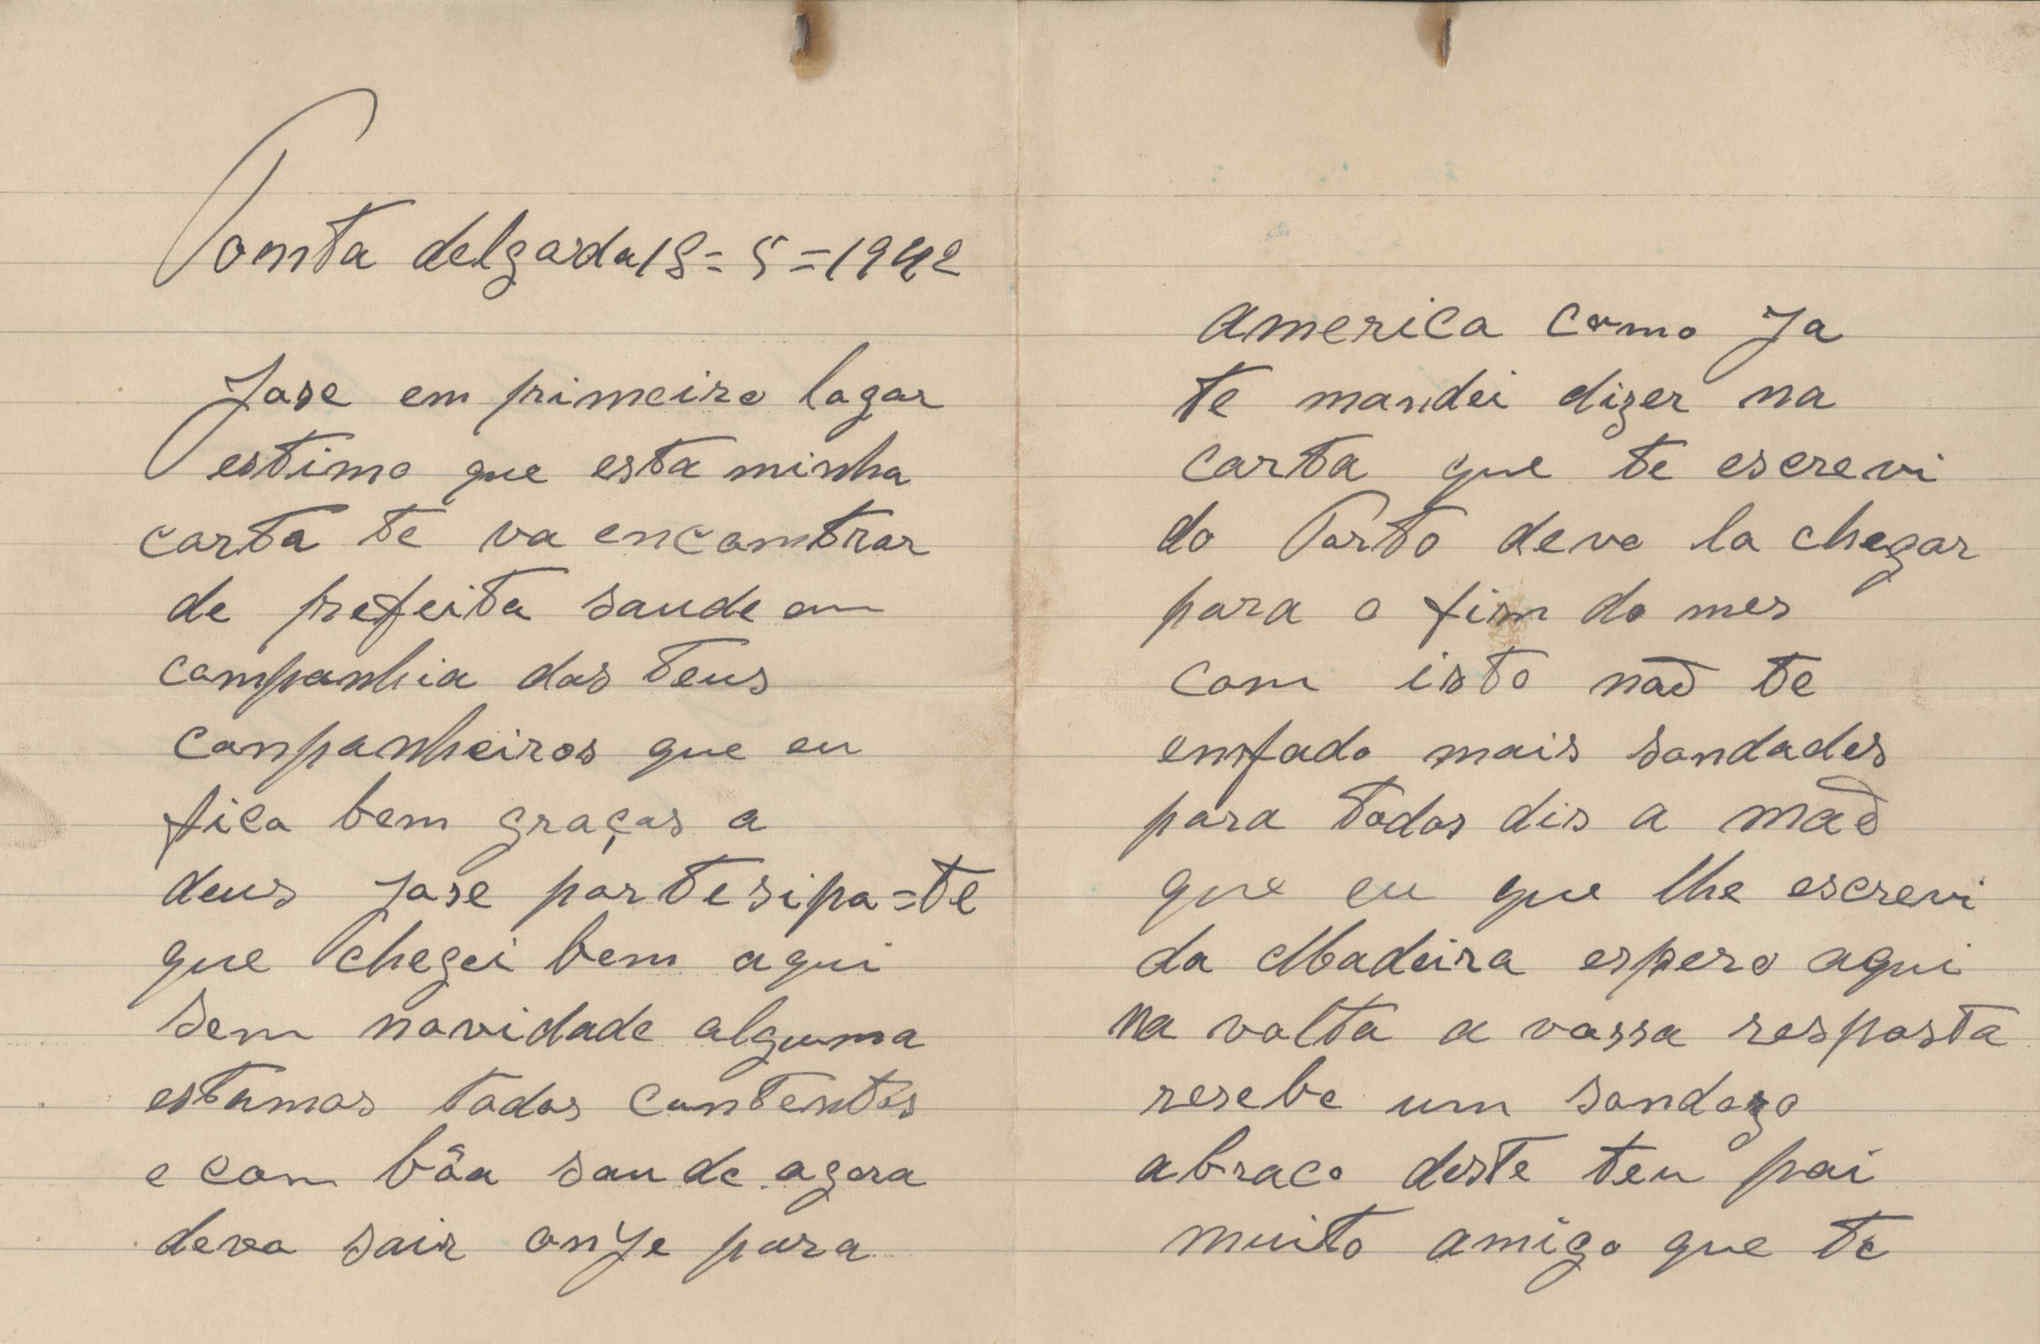 Ponta delgada 18=5=1942
Jose em primeiro logar
estimo que esta minha
carta te va encomtrar
de prefeita saude em
companhia dos teus
conpanheiros que eu
fico bem graças a
deus Jose partesipo=te
que chegei bem aqui
sem novidade alguma
estamos todos contentes
e com bôa saude agora
devo sair onje para
america como Ja
te mandei dizer na
carta que te escrevi
do Porto devo la chegar
para o fim do mes
com isto não te
emfado mais sandades
para todos dis a mão
que eu que lhe escrevi
da Madeira espero aqui
na volta a vossa resposta
resebe um sandozo
abraco deste teu pai
muito amigo que te